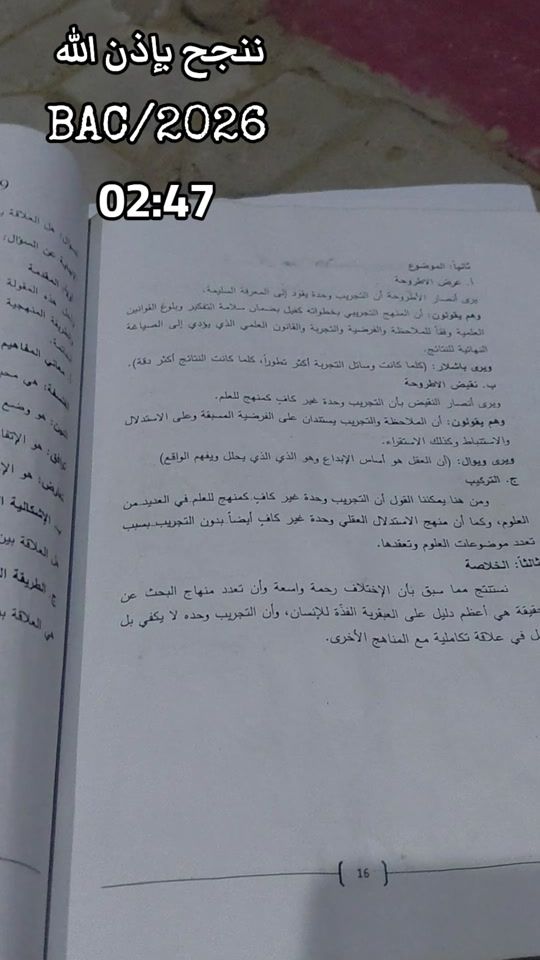 ننجح بإذن الله
BAC/2026
02:47
ثانياً: الموضوع
أ. عرض الاطروحة
يرى أنصار الأطروحة أن التجريب وحدة يقود إلى المعرفة السليمة.
وهم يقولون: أن المنهج التجريبي بخطواته كفيل بضمان سلامة التفكير وبلوغ القوانين
العلمية وفقاً للملاحظة والفرضية والتجربة والقانون العلمي الذي يؤدي إلى الصياغة
النهائية للنتائج.
ويرى باشلار: (كلما كانت وسائل التجربة أكثر تطوراً، كلما كانت النتائج أكثر دقة).
ب. نقيض الاطروحة
ويرى أنصار النقيض بأن التجريب وحدة غير كافٍ كمنهج للعلم.
وهم يقولون: أن الملاحظة والتجريب يستندان على الفرضية المسبقة وعلى الاستدلال
والاستنباط وكذلك الاستقراء.
ويرى ويوال: (أن العقل هو أساس الإبداع وهو الذي الذي يحلل ويفهم الواقع)
ج. التركيب
ومن هنا يمكننا القول أن التجريب وحدة غير كافٍ كمنهج للعلم في العديد من
العلوم، وكما أن منهج الاستدلال العقلي وحدة غير كافٍ أيضاً بدون التجريب بسبب
تعدد موضوعات العلوم وتعقدها.
ثالثاً: الخلاصة
نستنتج مما سبق بأن الإختلاف رحمة واسعة وأن تعدد منهاج البحث عن
حقيقة هي أعظم دليل على العبقرية الفذّة للإنسان، وأن التجريب وحده لا يكفي بل
ل في علاقة تكاملية مع المناهج الأخرى.
16
السؤال: هل العلاقة
الإجابة عن السؤال:
أولاً: المقدمة
هذه المقولة
والطريقة المنهجية
معاني المفاهيم
الفلسفة: هي
الدين: هو وضع
توافق: هو
تعارض: هو
ب. الإشكالية
هل العلاقة بين
ج. الطريقة
في العلاقة